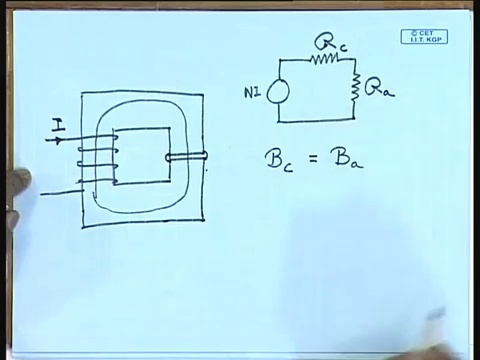 © CET
I.I.T. KGP
R_c
I
NI
R_a
B_c = B_a